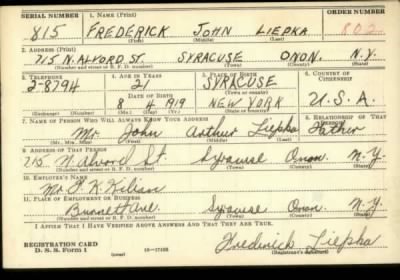 SERIAL NUMBER 1. NAME (Print) ORDER NUMBER
815 FREDERICK JOHN LIEPKA 802
(First) (Middle) (Last)
2. ADDRESS (Print)
715 N. ALVORD ST. SYRACUSE ONON. N.Y.
(Number and street or R. F. D. number) (Town) (County) (State)
3. TELEPHONE 4. AGE IN YEARS 5. PLACE OF BIRTH 6. COUNTRY OF CITIZENSHIP
2-8794 21 SYRACUSE
(Town or county)
DATE OF BIRTH
8 4 1919 NEW YORK U.S.A.
(Exchange) (Number) (Mo.) (Day) (Yr.) (State or country)
7. NAME OF PERSON WHO WILL ALWAYS KNOW YOUR ADDRESS 8. RELATIONSHIP OF THAT PERSON
Mr. John Arthur Liepka Father
(Mr., Mrs., Miss) (First) (Middle) (Last)
9. ADDRESS OF THAT PERSON
715 N. Alvord St. Syracuse Onon. N-Y.
(Number and street or R. F. D. number) (Town) (County) (State)
10. EMPLOYER'S NAME
Mr.
11. PLACE OF EMPLOYMENT OR BUSINESS
Burnett Ave. Syracuse Onon. N-Y.
(Number and street or R. F. D. number) (Town) (County) (State)
I AFFIRM THAT I HAVE VERIFIED ABOVE ANSWERS AND THAT THEY ARE TRUE.
REGISTRATION CARD
D. S. S. Form 1 (over) Frederick Liepka
(Registrant's signature)